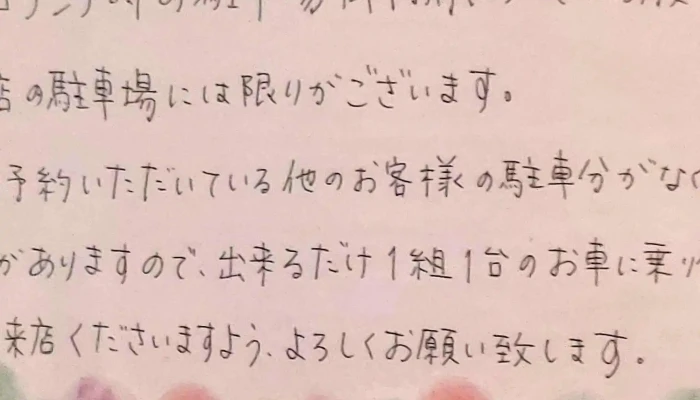 店の駐車場には限りがございます。
予約いただいている他のお客様の駐車分がなく
がありますので、出来るだけ1組1台のお車に乗り
来店くださいますよう、よろしくお願い致します。